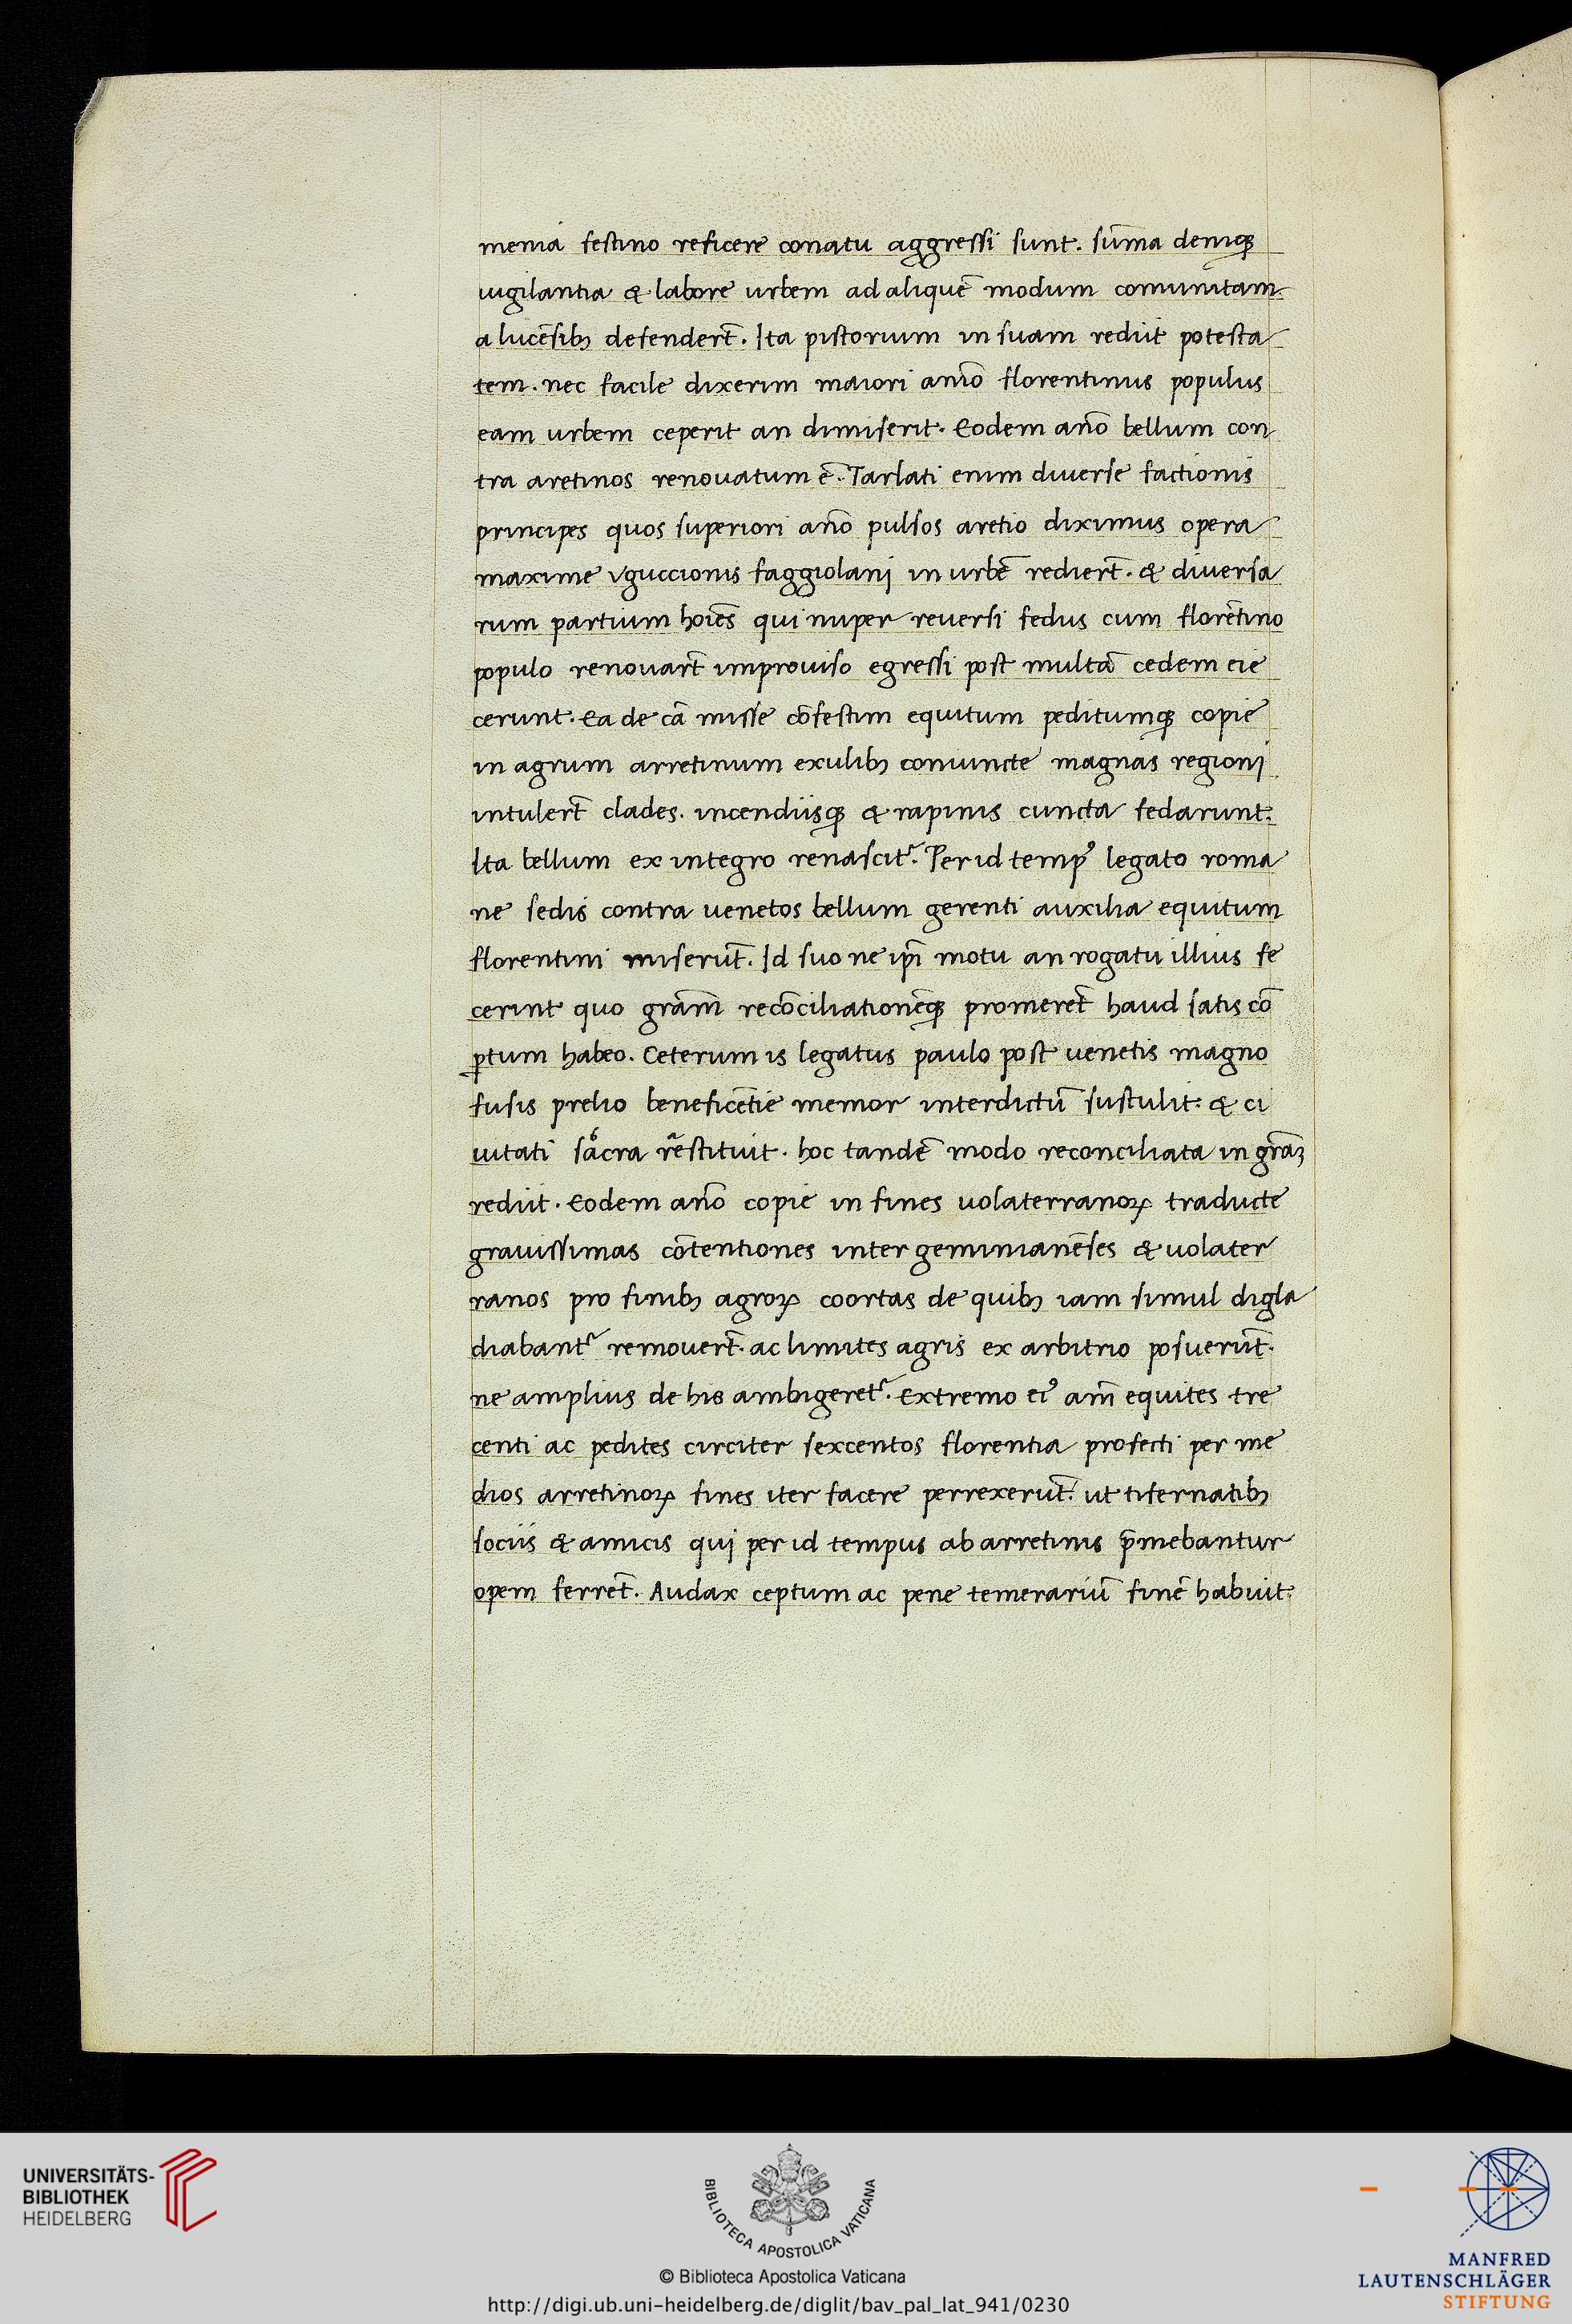 menia festino reficere conatu aggressi sunt. sūma demiqꝫ
uigilantia & labore urbem ad aliquē modum comunitam
a lucēsibꝫ defendert̄. Ita pistorium in suam rediit potesta
tem. nec facile dixerim maiori aīo florentinus populus
eam urbem ceperit an dimiserit. Eodem año bellum con
tra aretinos renouatum ē. Tarlati enim diuerse factionis
principes quos superiori año pulsos aretio diximus opera
maxime vguccionis faggiolani in urbē rediert̄. & diuersa
rum partium hoīes qui nuper reuersi fedus cum florētino
populo renouart̄ improuiso egressi post multā cedem eie
cerunt. Ea de cā misse cōfestim equitum peditumqꝫ copie
in agrum arretinum exulibꝫ coniuncte magnas regioni
intulert̄ clades. incendiisqꝫ & rapinis cuncta fedarunt.
Ita bellum ex integro renascitᷣ. Per id tempꝰ legato roma
ne sedis contra uenetos bellum gerenti auxilia equitum
florentini miserūt. Id suo ne ip̄i motu an rogatu illius fe
cerint quo grām̄ recōciliationēqꝫ promeret̄ haud satis cō
ꝑtum habeo. Ceterum is legatus paulo post uenetis magno
fusis prelio beneficētie memor interdictū sustulit. & ci
uitati sacra restituit. hoc tandē modo reconciliata in grāꝫ
rediit. Eodem año copie in fines uolaterranoꝝ traducte
grauissimas cōtentiones inter geminianēses & uolater
ranos pro finibꝫ agroꝝ coortas de quibꝫ iam simul digla
diabantᷣ remouert̄. ac limites agris ex arbitrio posuerūt.
ne amplius de his ambigeretᷣ. Extremo eiꝰ añi equites tre
centi ac pedites circiter sexcentos florentia profecti per me
dios arretinoꝝ fines iter facere perrexerūt. ut tifernatibꝫ
sociis & amicis qui per id tempus ab arretinis p̄mebantur
opem ferret̄. Audax ceptum ac pene temerariū finē habuit.
UNIVERSITÄTS-
BIBLIOTHEK
HEIDELBERG
BIBLIOTECA APOSTOLICA VATICANA
© Biblioteca Apostolica Vaticana
http://digi.ub.uni-heidelberg.de/diglit/bav_pal_lat_941/0230
MANFRED
LAUTENSCHLÄGER
STIFTUNG